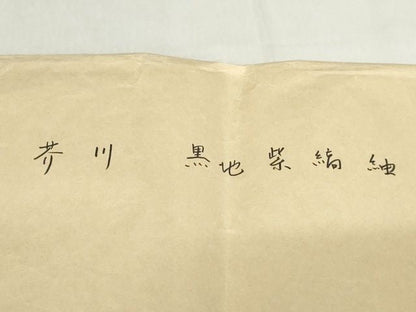 芥川 黒地柴縞紬